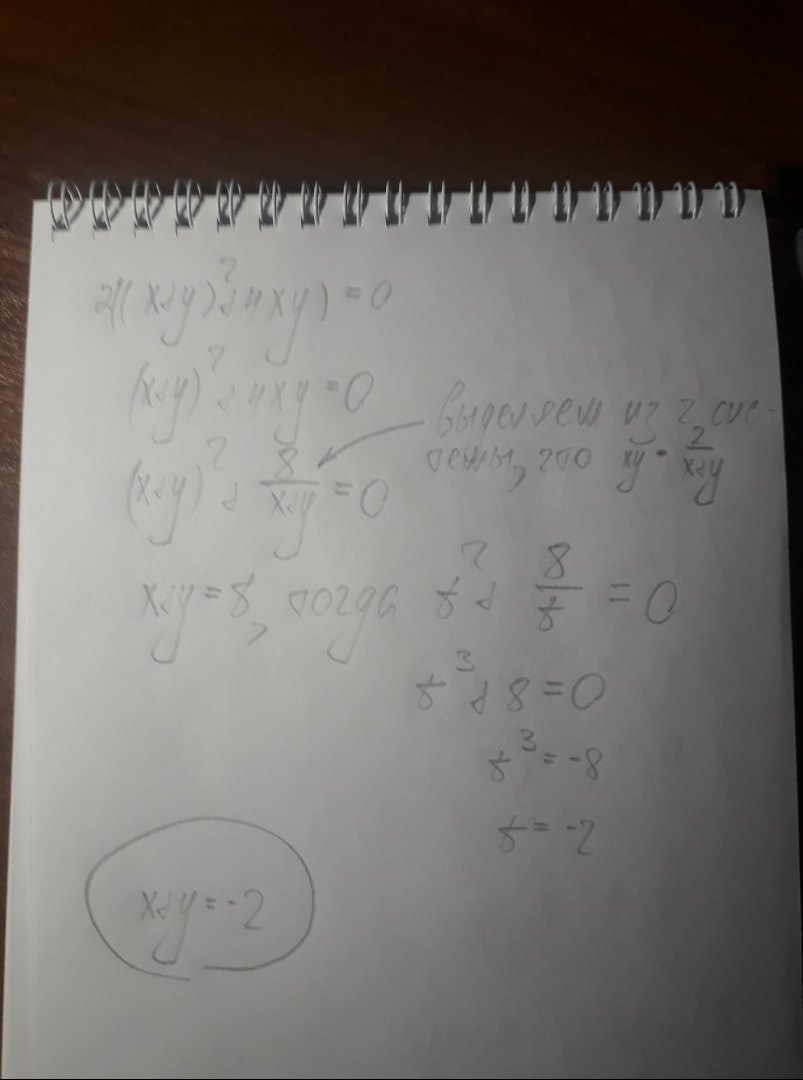 2((x+y)²+4xy)=0
(x+y)²+4xy=0
(x+y)²+8/(x+y)=0
выделяем из 2 сис-
темы, что xy=2/(x+y)
x+y=t, тогда t²+8/t=0
t³+8=0
t³=-8
t=-2
x+y=-2